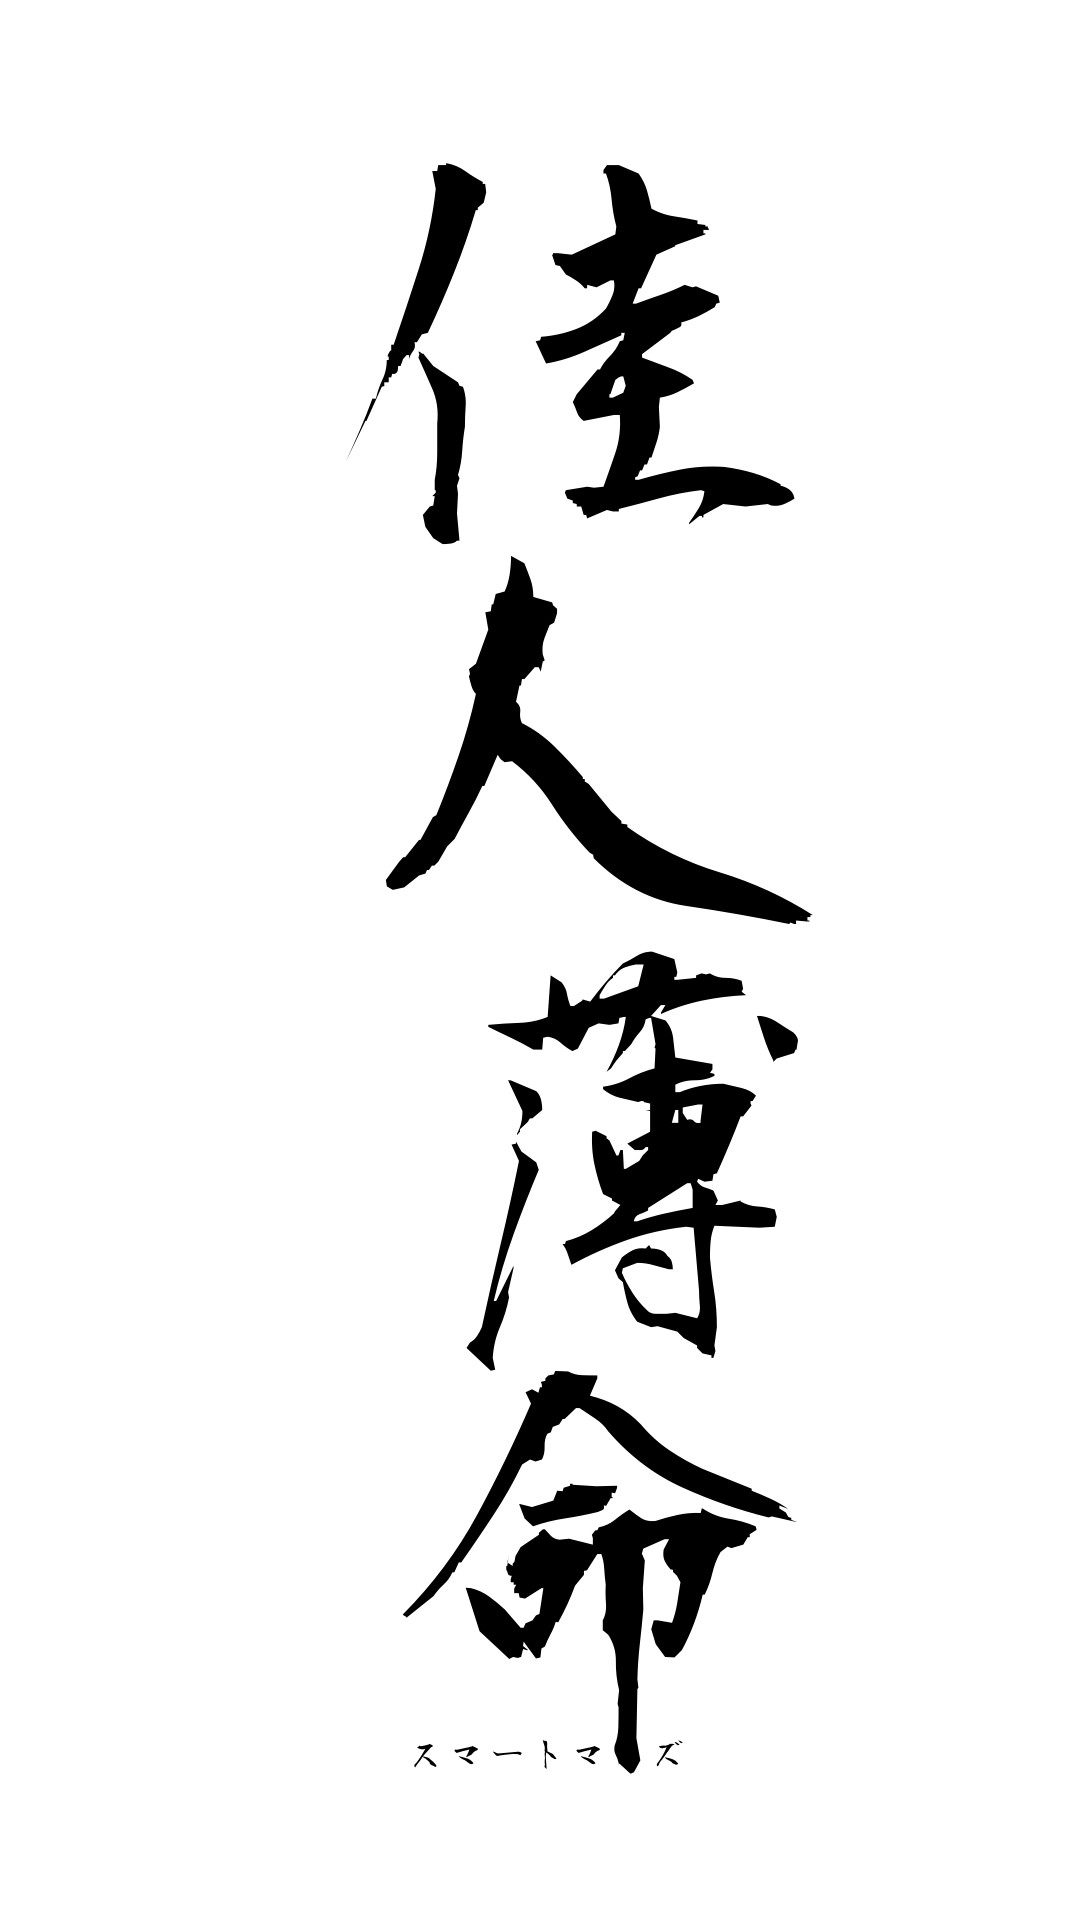 佳人薄命
スマートマ ズ